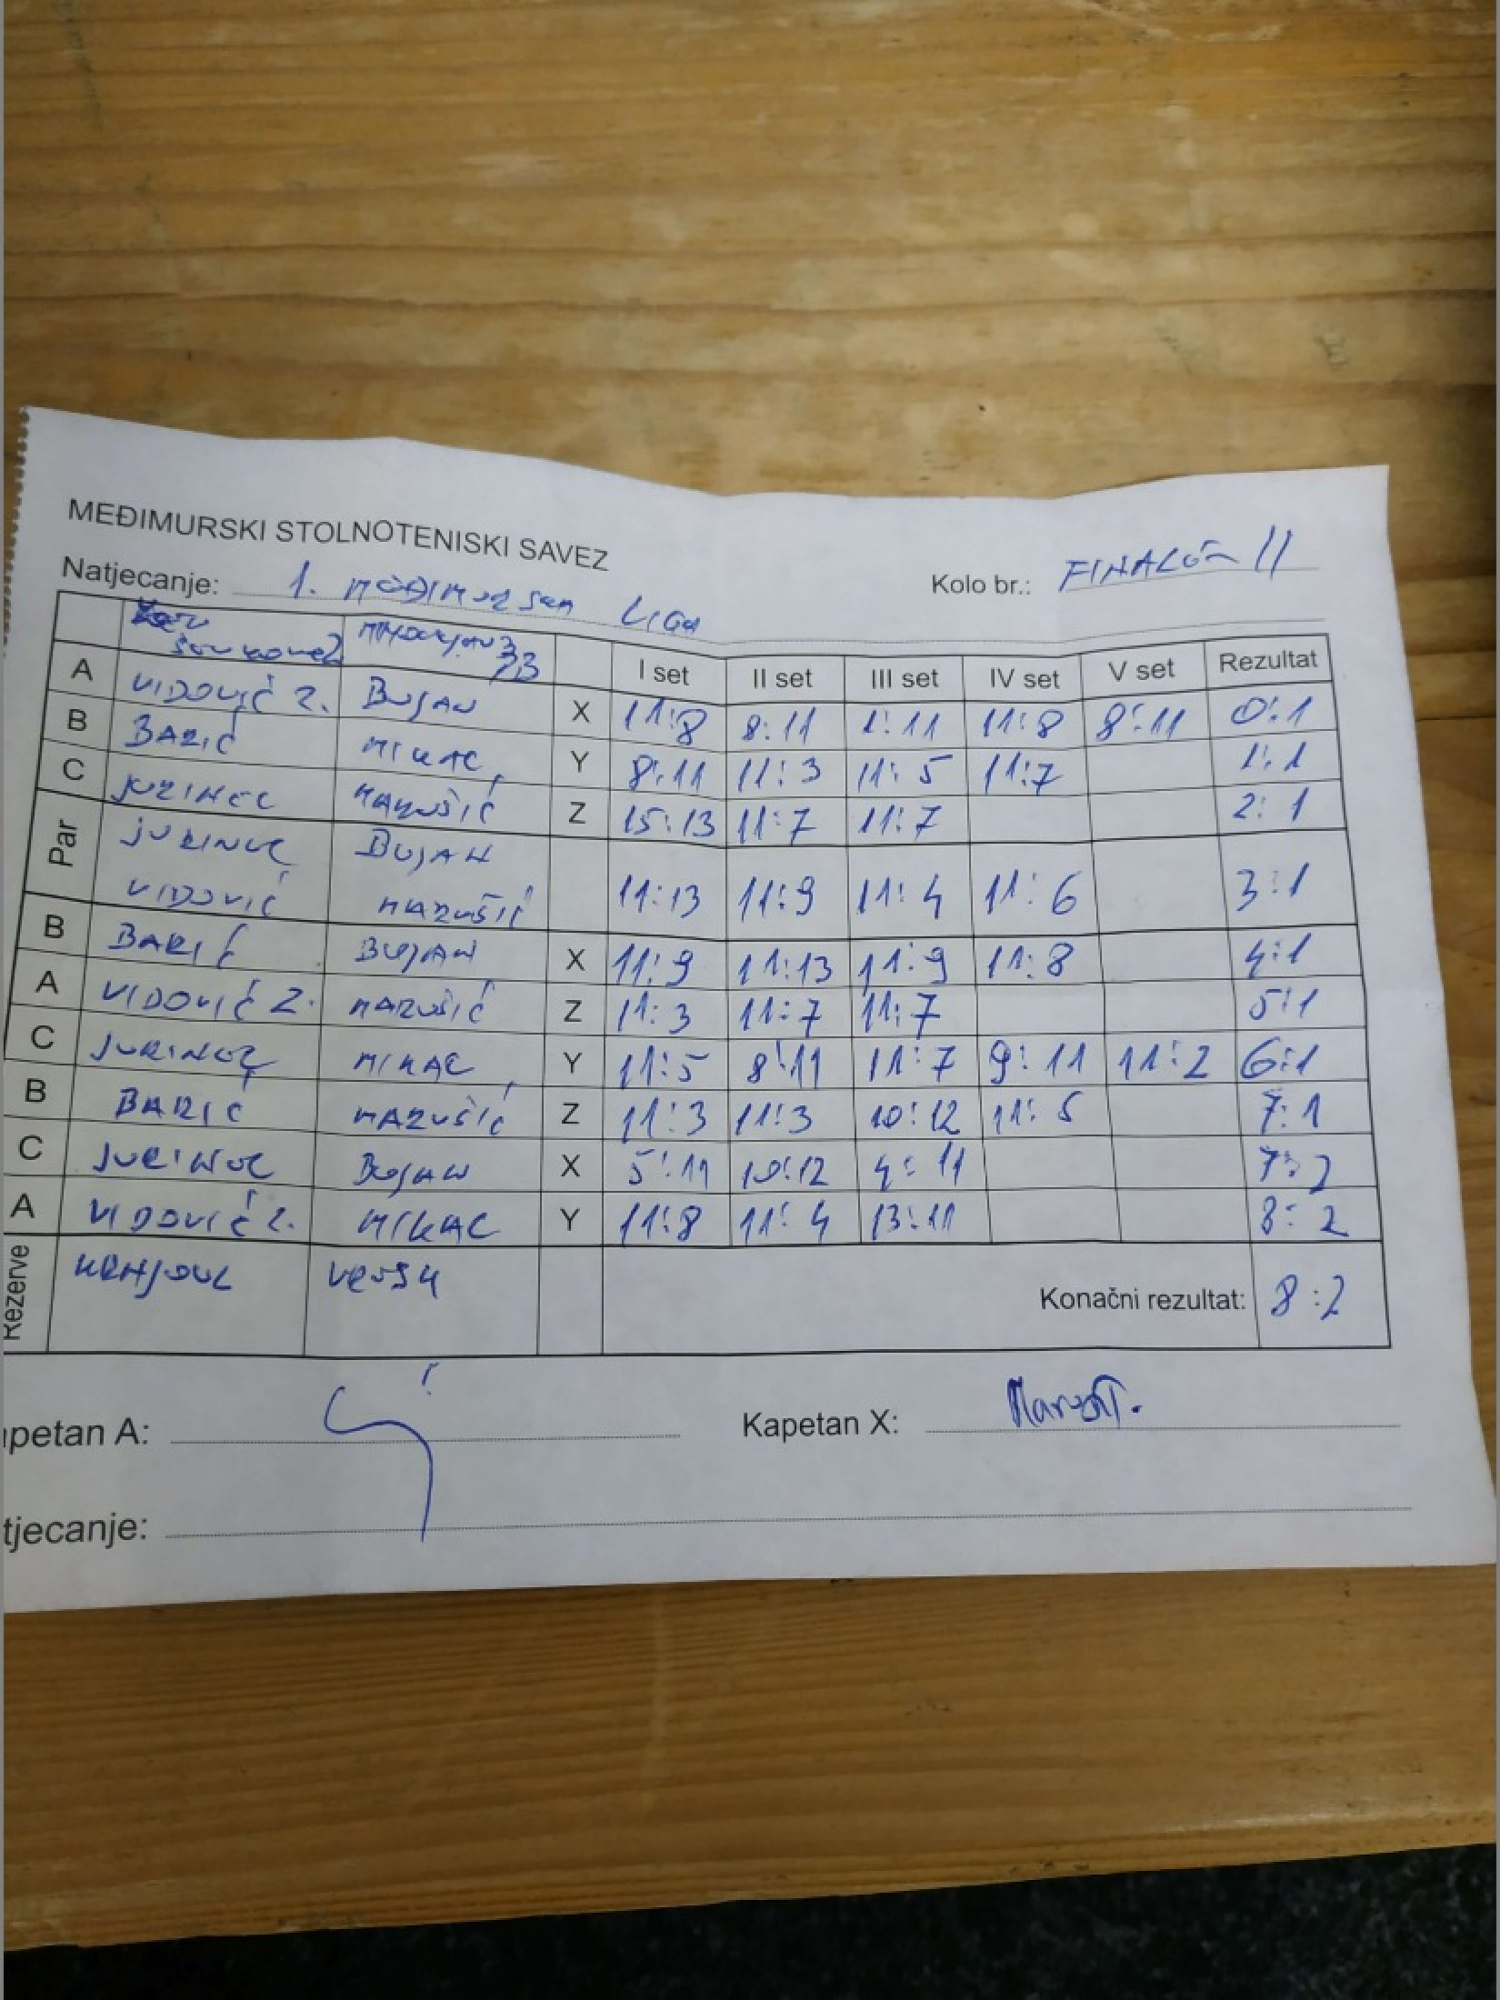 MEĐIMURSKI STOLNOTENISKI SAVEZ
Natjecanje: 1. LIGA
Kolo br.: FINALE II
I set II set III set IV set V set Rezultat
A VIDOVIĆ Z. BUJAN X 11:8 8:11 1:11 11:8 8:11 0:1
B BARIĆ MIKAC Y 8:11 11:3 11:5 11:7 1:1
C JURINEC MARUŠIĆ Z 15:13 11:7 11:7 2:1
Par JURINEC BUJAN
VIDOVIĆ MARUŠIĆ 11:13 11:9 11:4 11:6 3:1
B BARIĆ BUJAN X 11:9 11:13 11:9 11:8 4:1
A VIDOVIĆ Z. MARUŠIĆ Z 11:3 11:7 11:7 5:1
C JURINEC MIKAC Y 11:5 8:11 11:7 9:11 11:2 6:1
B BARIĆ MARUŠIĆ Z 11:3 11:3 10:12 11:5 7:1
C JURINEC BUJAN X 5:11 10:12 4:11 7:2
A VIDOVIĆ Z. MIKAC Y 11:8 11:4 13:11 8:2
Rezerve
Konačni rezultat: 8:2
petan A:
Kapetan X:
tjecanje: